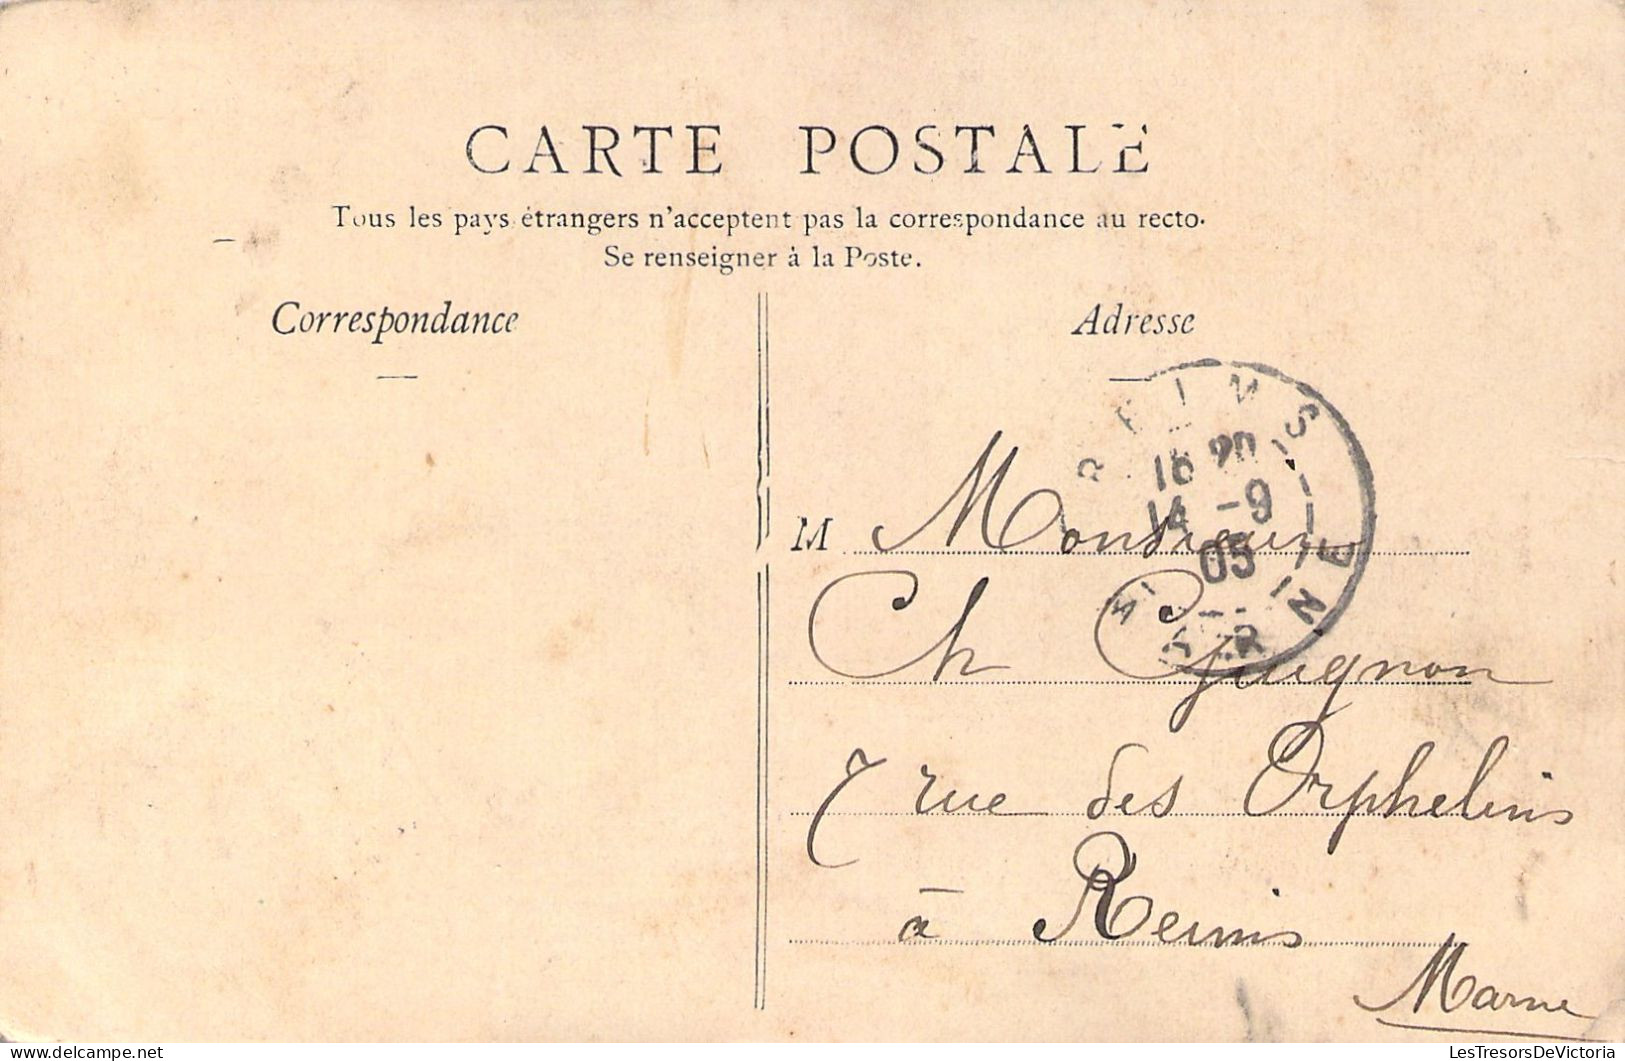 CARTE POSTALE
Tous les pays étrangers n'acceptent pas la correspondance au recto.
Se renseigner à la Poste.
Correspondance
Adresse
REIMS
14 -9
05
MARNE
M Monsieur
Ch Guignon
7 rue des Orphelins
à Reims
Marne
LesTresorsDeVictoria